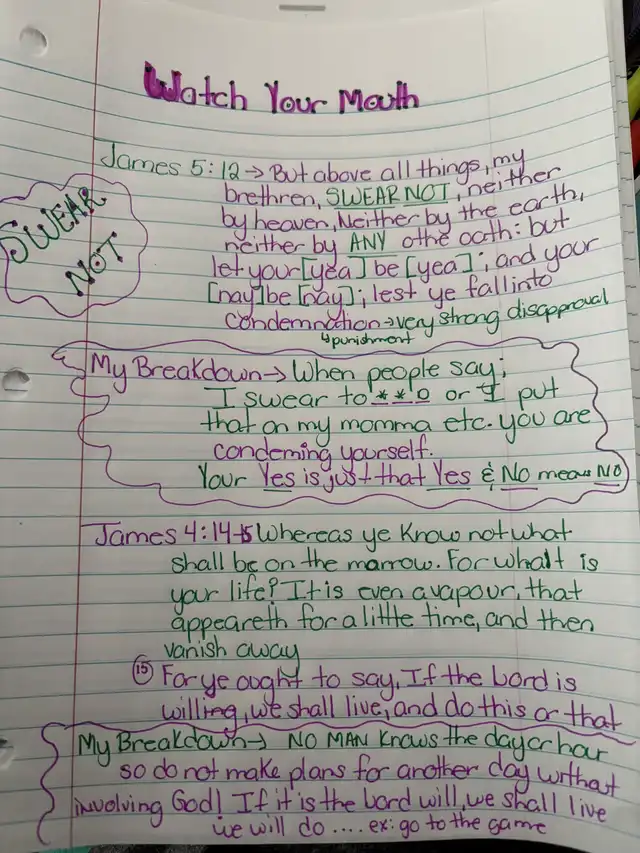 Watch Your Mouth
James 5:12 → But above all things, my
brethren, SWEAR NOT, neither
by heaven, Neither by the earth,
neither by ANY othe oath: but
let your [yea] be [yea]; and your
[nay] be [nay]; lest ye fall into
condemnation → very strong disapproval
↳ punishment
SWEAR
NOT
My Breakdown → When people say;
I swear to * * o or I put
that on my momma etc. you are
condeming yourself.
Your Yes is just that Yes & No means NO
James 4:14-15 Whereas ye know not what
shall be on the marrow. For whalt is
your life? It is even a vapour, that
appeareth for a little time, and then
vanish away
(15) For ye ought to say, If the Lord is
willing, we shall live, and do this or that
My Breakdown → NO MAN Knows the day or hour
so do not make plans for another day without
involving God! If it is the Lord will, we shall live
we will do .... ex: go to the game